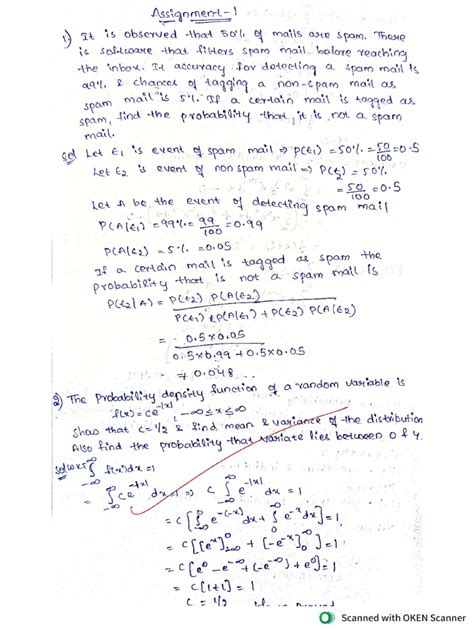 Assignment-1
1) It is observed that 50% of mails are spam. There
is software that filters spam mail before reaching
the inbox. It accuracy for detecting a spam mail is
99% & chances of tagging a non-spam mail as
spam mail is 5%. If a certain mail is tagged as
spam, find the probability that it is not a spam
mail.
Sol Let E1 is event of spam mail ⇒ P(E1) = 50% = 50/100 = 0.5
Let E2 is event of non spam mail ⇒ P(E2) = 50%
= 50/100 = 0.5
Let A be the event of detecting spam mail
P(A|E1) = 99% = 99/100 = 0.99
P(A|E2) = 5% = 0.05
If a certain mail is tagged as spam the
probability that is not a spam mail is
P(E2|A) = P(E2) P(A|E2)
P(E1) P(A|E1) + P(E2) P(A|E2)
= 0.5x0.05
0.5x0.99 + 0.5x0.05
= 0.048
2) The Probability density function of a random variable is
f(x) = ce^-|x|, -∞≤x≤∞
Show that c=1/2 & find mean & variance of the distribution
Also find the probability that variate lies between 0 & 4.
Sol W.K.T ∫_-∞^∞ f(x)dx = 1
= ∫_-∞^∞ ce^-|x| dx = 1 ⇒ c ∫_-∞^∞ e^-|x| dx = 1
= c[∫_-∞^0 e^-(-x) dx + ∫_0^∞ e^-x dx] = 1
= c[[e^x]_-∞^0 + [-e^-x]_0^∞] = 1
= c[e^0 - e^-∞ + (-e^-∞) + e^0] = 1
= c[1+1] = 1
c = 1/2
Scanned with OKEN Scanner